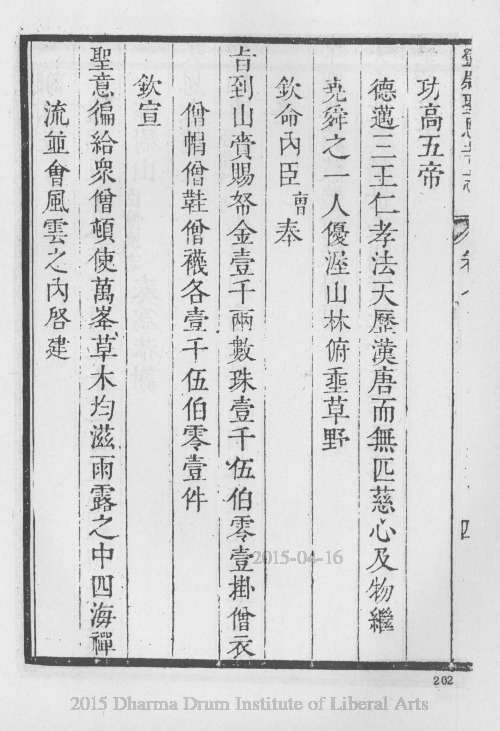 功高五帝
德邁三王仁孝法天歷漢唐而無匹慈心及物繼
堯舜之一人優渥山林俯垂草野
欽命內臣曹奉
旨到山賚賜帑金壹千兩數珠壹千伍伯零壹掛僧衣
僧帽僧鞋僧襪各壹千伍伯零壹件
欽宣
聖意徧給眾僧頓使萬峯草木均滋雨露之中四海禪
流並會風雲之內啓建
四
2015-04-16
202
2015 Dharma Drum Institute of Liberal Arts